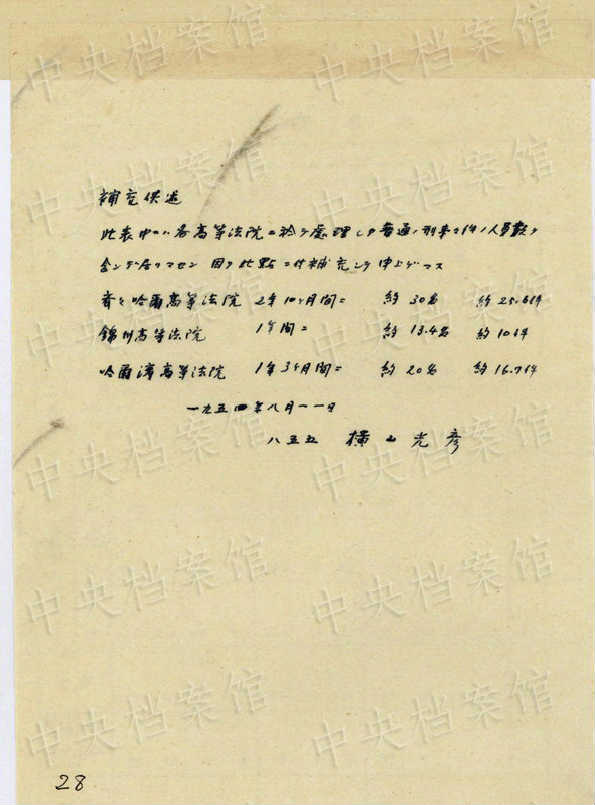 補充供述
此表中ニハ各高等法院ニ於テ處理シタ普通ノ刑事々件ノ人員数ヲ
含ンデ居リマセン 因テ此點ニ付補充シテ申上ゲマス
斉々哈爾高等法院 2年10ヶ月間ニ 約30名 約25.6件
錦州高等法院 1年間ニ 約13.4名 約10件
哈爾濱高等法院 1年3ヶ月間ニ 約20名 約16.7件
一九五四年八月二一日
八五五 横山光彦
28
中央档案馆